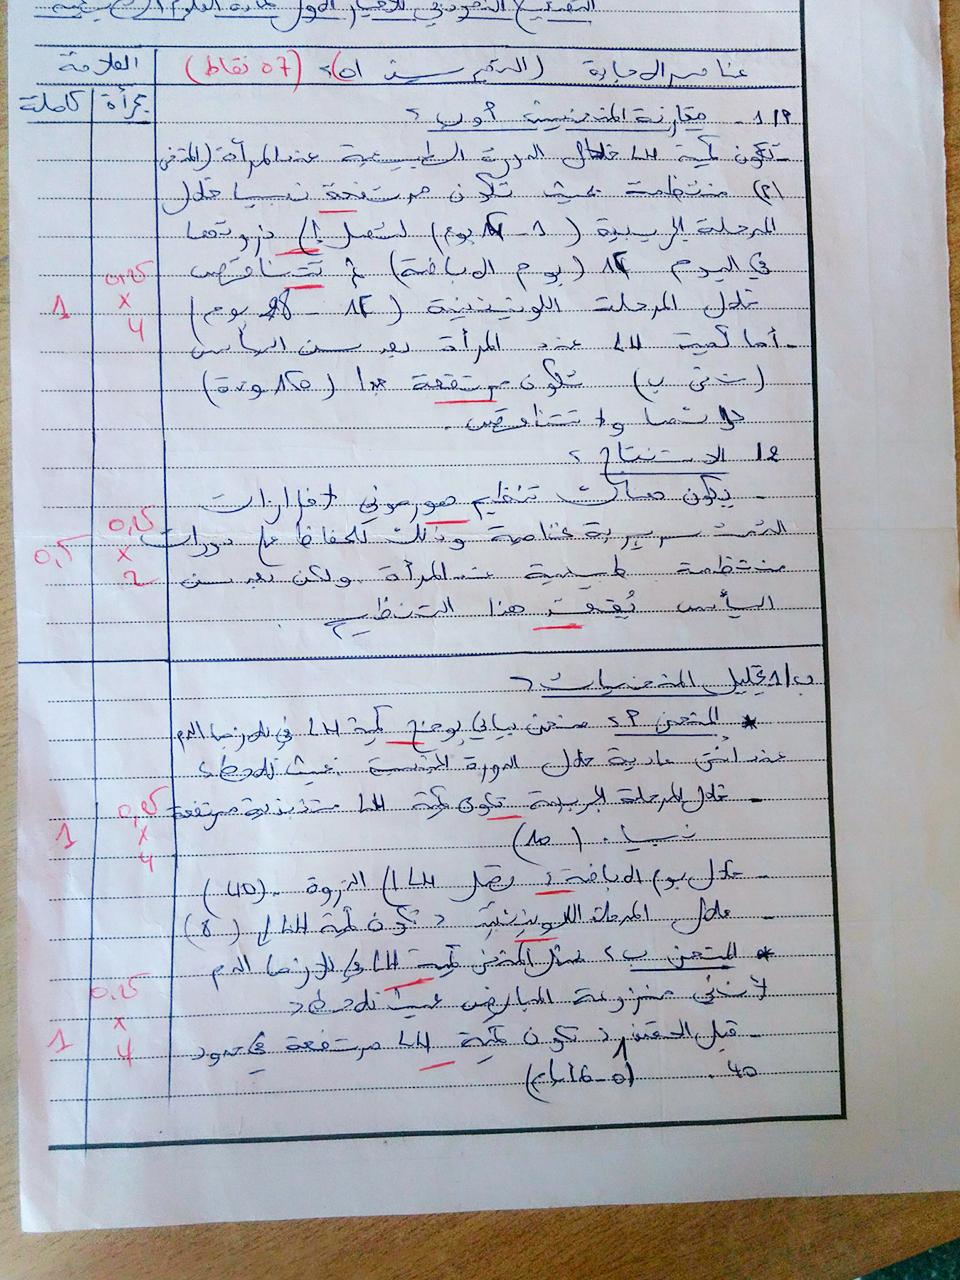 التصحيح النموذجي للاختبار الأول لمادة العلوم الطبيعية
عناصر الإجابة (التمرين 01) (07 نقاط) العلامة
مجزأة كاملة
1/أ - مقارنة المنحنيين أ و ب :
- تكون كمية LH خلال الدورة الطبيعية عند المرأة (المنحنى
أ) منتظمة حيث تكون مرتفعة نسبيا خلال
المرحلة الجريبية (1 - 14 يوم) لتصل إلى ذروتها
في اليوم 14 (يوم الإباضة) ثم تتناقص
خلال المرحلة اللوتيئينية (14 - 28 يوم)
0,25 × 4
1
- أما كمية LH عند المرأة بعد سن اليأس
(منحنى ب) تكون مرتفعة جدا (150 وحدة)
دائما ولا تتناقص.
2/ الاستنتاج :
- يكون هناك تنظيم هرموني لإفرازات
الغدة النخامية وذلك للحفاظ على دورات
منتظمة طبيعية عند المرأة ولكن بعد سن
اليأس يُفقد هذا التنظيم.
0,25 × 2
0,5
ب/1 تحليل المنحنيات :
* المنحنى أ : منحنى بياني يوضح كمية LH في بلازما الدم
عند أنثى عادية خلال الدورة الجنسية حيث نلاحظ :
- خلال المرحلة الجريبية تكون كمية LH متذبذبة مرتفعة
نسبيا. (10)
- خلال يوم الإباضة : تصل LH إلى الذروة. (40)
- خلال المرحلة اللوتيئينية : تكون كمية LH (8)
0,25 × 4
1
* المنحنى ب : يمثل المنحنى كمية LH في بلازما الدم
لأنثى منزوعة المبايض حيث نلاحظ :
- قبل الحقن : تكون كمية LH مرتفعة في حدود
40. (0 - 16 أيام)
0,25 × 4
1